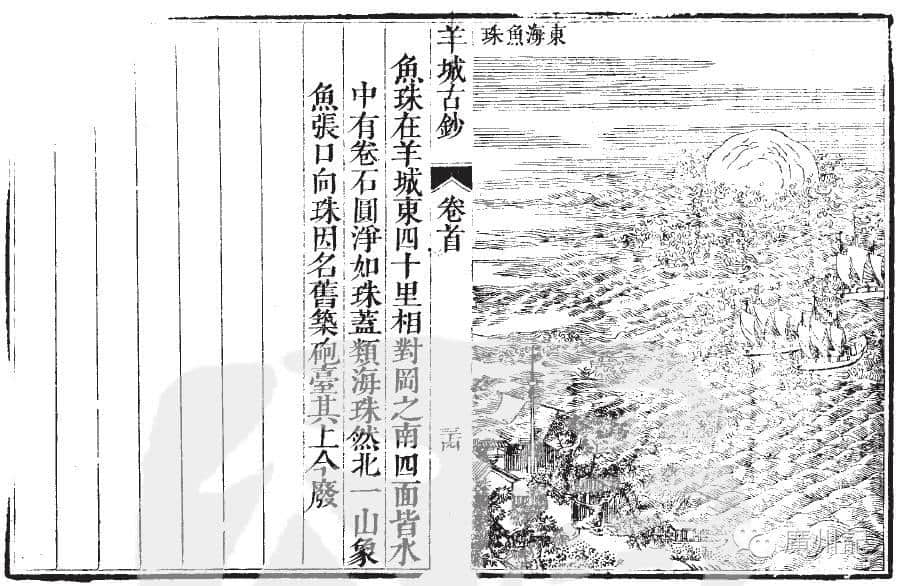 東海魚珠
羊城古鈔 卷首
魚珠在羊城東四十里相對岡之南四面皆水
中有卷石圓淨如珠蓋類海珠然北一山象
魚張口向珠因名舊築砲臺其上今廢
廣州記